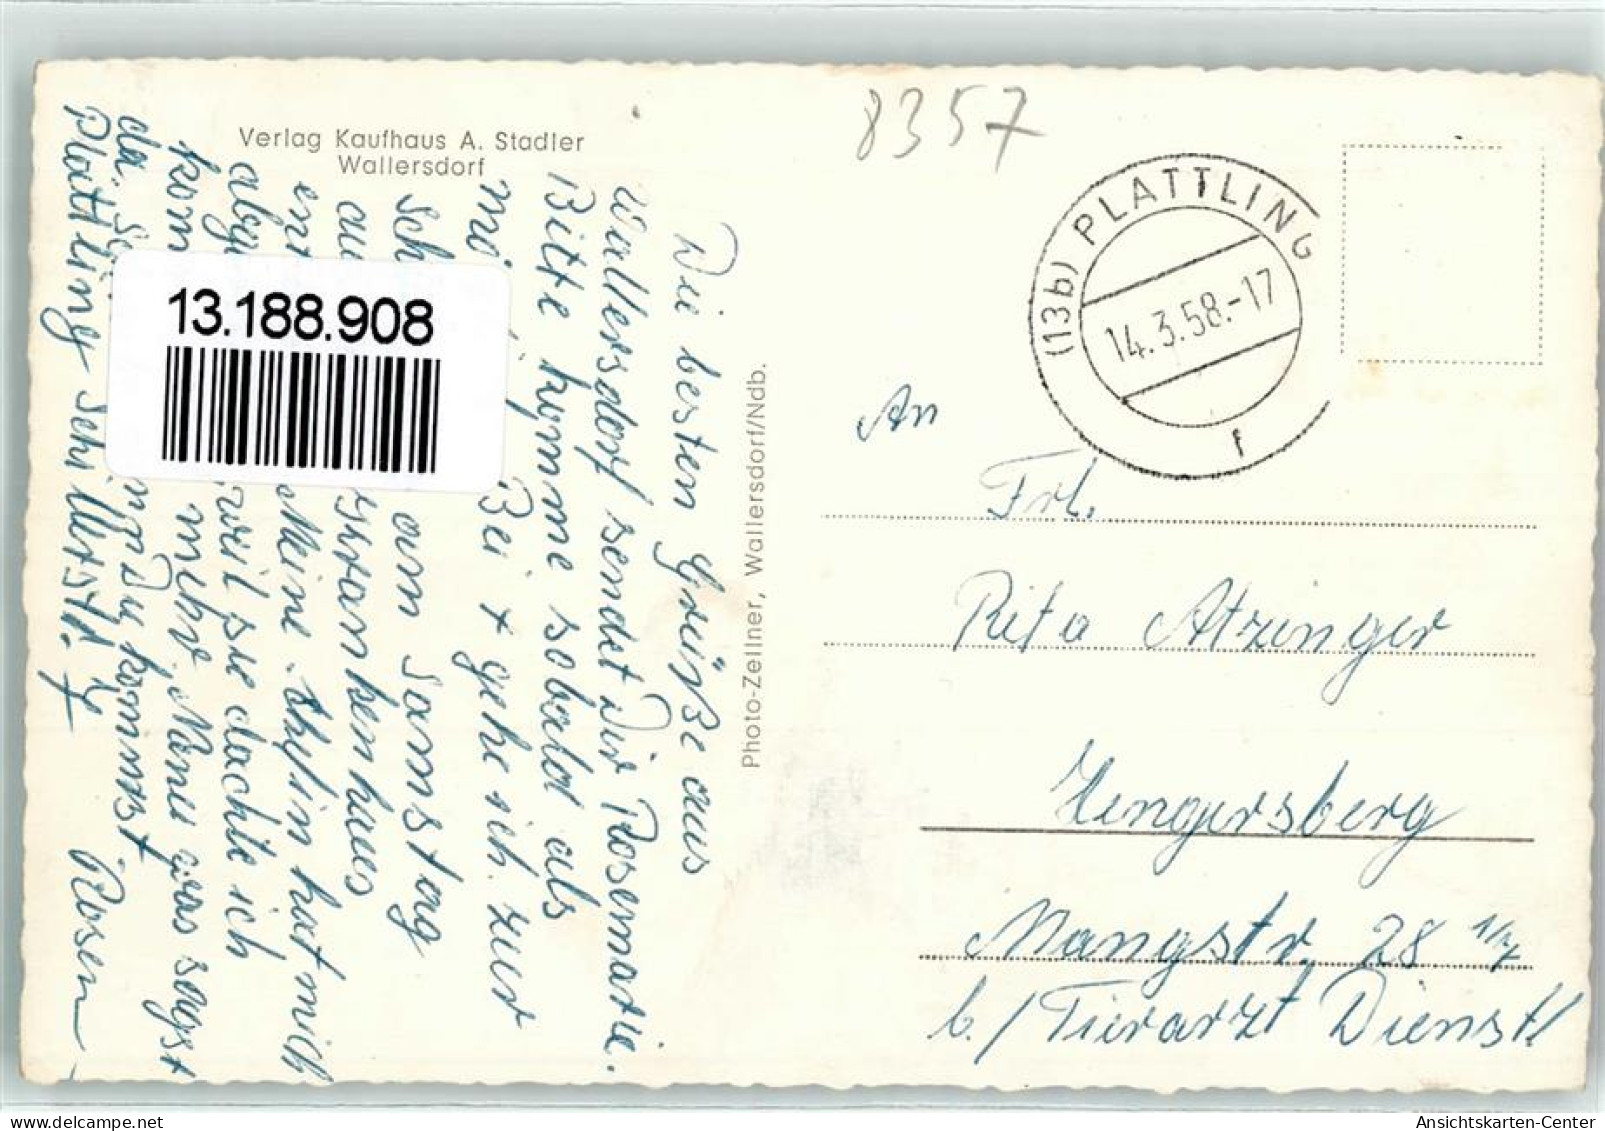 Verlag Kaufhaus A. Stadler
Wallersdorf
8357
(13b) PLATTLING
14.3.58.-17
f
13.188.908
Die besten Grüße aus
Wallersdorf sendet Dir Rosemarie.
Bitte komme sobald als
Bei + gehe ich zur
Sch am Samstag
Krankenhaus
Meine hat mich
weil sie dachte ich
kom mehr. was sagst
da. Du kommst
Plattling Rosen
Photo-Zellner, Wallersdorf/Ndb.
An
Frl.
Rita Atzinger
Hengersberg
Mangstr. 28 1/2
b./Tierarzt Dienstl
Ansichtskarten-Center